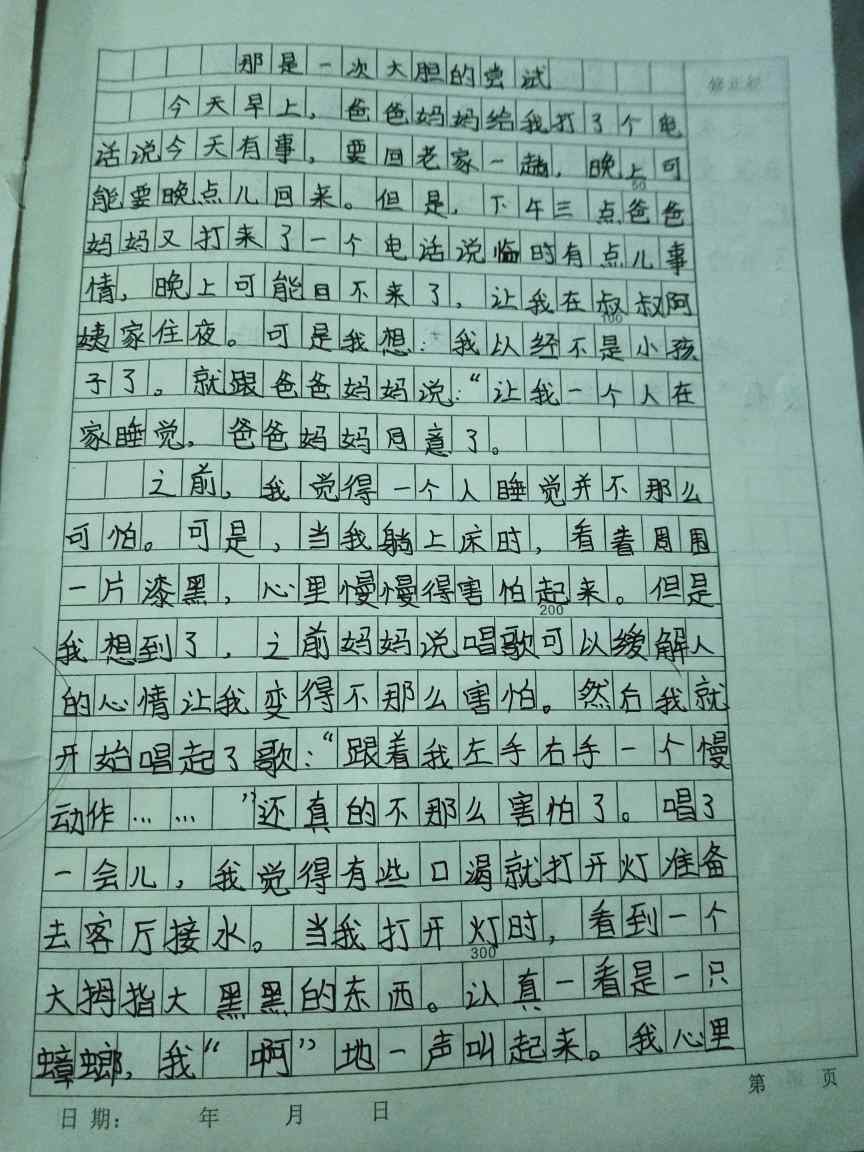 那是一次大胆的尝试
今天早上，爸爸妈妈给我打了个电
话说今天有事，要回老家一趟，晚上可
50
能要晚点儿回来。但是，下午三点爸爸
妈妈又打来了一个电话说临时有点儿事
情，晚上可能回不来了，让我在叔叔阿
100
姨家住夜。可是我想：我以经不是小孩
子了。就跟爸爸妈妈说：“让我一个人在
家睡觉，爸爸妈妈同意了。
之前，我觉得一个人睡觉并不那么
可怕。可是，当我躺上床时，看着周围
一片漆黑，心里慢慢得害怕起来。但是
200
我想到了，之前妈妈说唱歌可以缓解人
的心情让我变得不那么害怕。然后我就
开始唱起了歌：“跟着我左手右手一个慢
动作……”还真的不那么害怕了。唱了
一会儿，我觉得有些口渴就打开灯准备
去客厅接水。当我打开灯时，看到一个
300
大拇指大黑黑的东西。认真一看是一只
蟑螂，我“啊”地一声叫起来。我心里
第 页
日期： 年 月 日